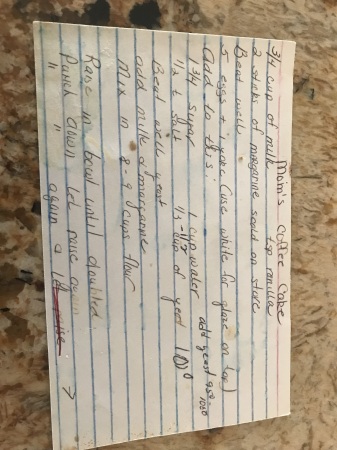 Mom's Coffee Cake
3/4 cup of milk tsp vanilla
2 sticks of margarine scald on stove
Beat well
5 eggs + 1 yoke (use white for glaze on top)
Add to this:
1 3/4 sugar 1 cup water add yeast 95°
1/2 t salt cup of yeast 100°
Beat well yeast
add milk & margarine
Mix in 8-9 cups flour
Raise in bowl until doubled.
Punch down let raise again
" " again & let raise →